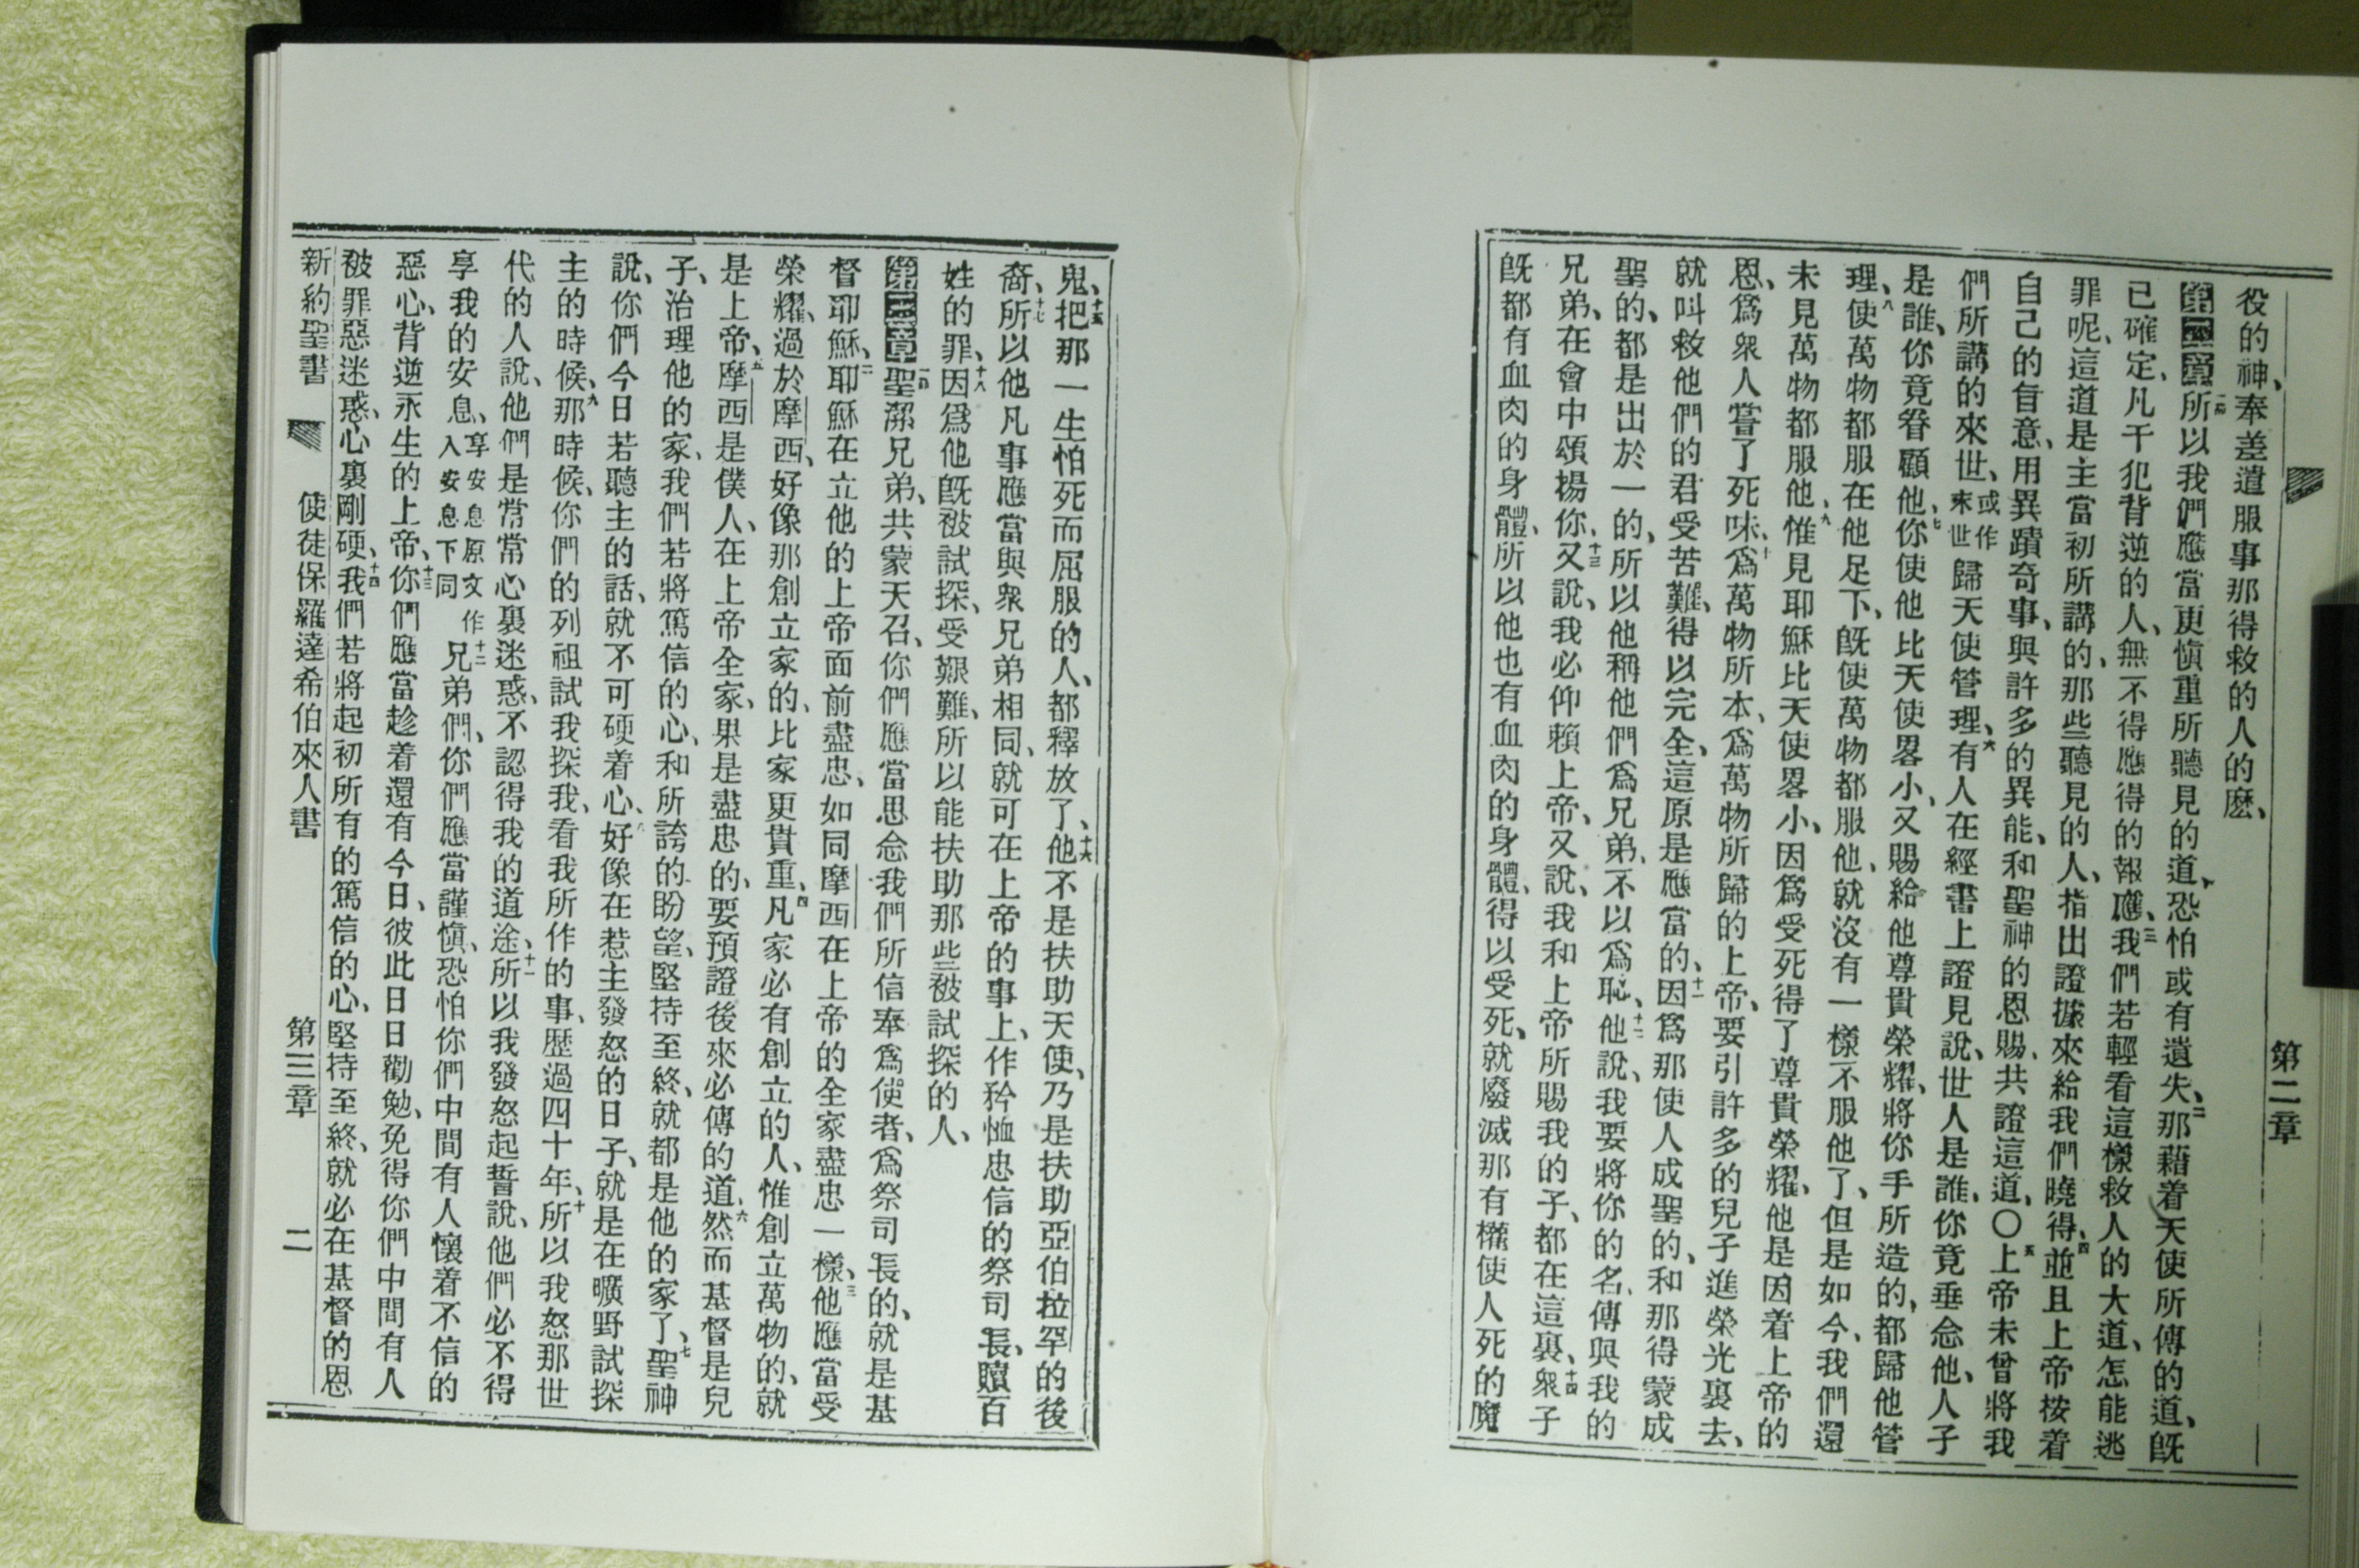 第二章
役的神、奉差遣服事那得救的人的麽、
第二章 一節所以我們應當更愼重所聽見的道、恐怕或有遺失、二那藉着天使所傳的道、旣
已確定、凡干犯背逆的人、無不得應得的報應、三我們若輕看這樣救人的大道、怎能逃
罪呢、這道是主當初所講的、那些聽見的人、指出證據來給我們曉得、四並且上帝按着
自己的旨意、用異蹟奇事、與許多的異能、和聖神的恩賜、共證這道、〇五上帝未曾將我
們所講的來世、或作末世歸天使管理、六有人在經書上證見說、世人是誰、你竟垂念他、人子
是誰、你竟眷顧他、七你使他比天使畧小、又賜給他尊貴榮耀、將你手所造的、都歸他管
理、八使萬物都服在他足下、旣使萬物都服他、就沒有一樣不服他了、但是如今、我們還
未見萬物都服他、九惟見耶穌比天使畧小、因爲受死得了尊貴榮耀、他是因着上帝的
恩、爲衆人嘗了死味、十爲萬物所本、爲萬物所歸的上帝、要引許多的兒子進榮光裏去、
就叫救他們的君受苦難、得以完全、這原是應當的、十一因爲那使人成聖的、和那得蒙成
聖的、都是出於一的、所以他稱他們爲兄弟、不以爲恥、十二他說、我要將你的名、傳與我的
兄弟、在會中頌揚你、十三又說、我必仰賴上帝、又說、我和上帝所賜我的子、都在這裏、十四衆子
旣都有血肉的身體、所以他也有血肉的身體、得以受死、就廢滅那有權使人死的魔
鬼、十五把那一生怕死而屈服的人、都釋放了、十六他不是扶助天使、乃是扶助亞伯拉罕的後
裔、十七所以他凡事應當與衆兄弟相同、就可在上帝的事上、作矜恤忠信的祭司長、贖百
姓的罪、十八因爲他旣被試探、受艱難、所以能扶助那些被試探的人、
第三章 一節聖潔兄弟、共蒙天召、你們應當思念我們所信奉爲使者、爲祭司長的、就是基
督耶穌、二耶穌在立他的上帝面前盡忠、如同摩西在上帝的全家盡忠一樣、三他應當受
榮耀、過於摩西、好像那創立家的、比家更貴重、四凡家必有創立的人、惟創立萬物的、就
是上帝、五摩西是僕人、在上帝全家、果是盡忠的、要預證後來必傳的道、六然而基督是兒
子、治理他的家、我們若將篤信的心、和所誇的盼望、堅持至終、就都是他的家了、七聖神
說、你們今日若聽主的話、就不可硬着心、八好像在惹主發怒的日子、就是在曠野試探
主的時候、九那時候、你們的列祖試我探我、看我所作的事、歷過四十年、十所以我怒那世
代的人、說、他們是常常心裏迷惑、不認得我的道途、十一所以我發怒起誓說、他們必不得
享我的安息、享安息原文作入安息下同十二兄弟們、你們應當謹愼、恐怕你們中間有人懷着不信的
惡心、背逆永生的上帝、十三你們應當趁着還有今日、彼此日日勸勉、免得你們中間有人
被罪惡迷惑、心裏剛硬、十四我們若將起初所有的篤信的心、堅持至終、就必在基督的恩
新約聖書 使徒保羅達希伯來人書 第三章 二